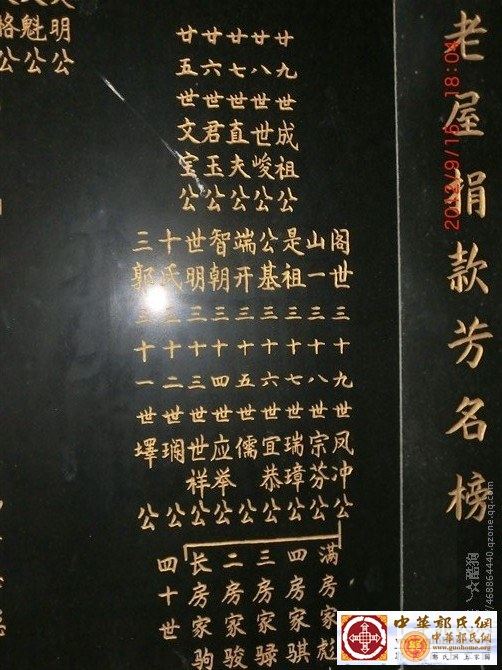 老屋捐款芳名榜
廿九世成祖公
廿八世世峻公
廿七世直夫公
廿六世君玉公
廿五世文宝公
阁世三十九世凤冲公
山一三十八世宗芬公
是祖三十七世瑞璋公
公基三十六世宜恭公
端开三十五世儒公
智朝三十四世应举公
世明三十三世世祥公
十氏三十二世公
三郭三十一世墿公
满房家彪
四房家骐
三房家
二房家骏
长房家驹
四十世
明公
魁公
格公
18:04
酷狗
468864440.qzone.qq.com
中華郭氏網
中華郭氏網
www.guohome.org